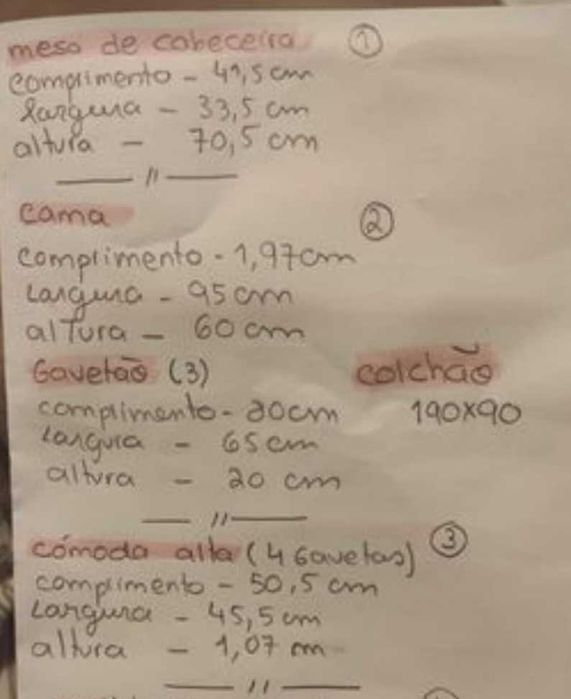 mesa de cabeceira ①
comprimento - 41,5 cm
largura - 33,5 cm
altura - 70,5 cm
— // —
cama ②
comprimento - 1,97cm
largura - 95 cm
altura - 60 cm
Gavetão (3) colchão
comprimento - 20cm 190x90
largura - 65 cm
altura - 20 cm
— // —
cómoda alta (4 Gavetas) ③
comprimento - 50,5 cm
largura - 45,5 cm
altura - 1,07 m
— // —